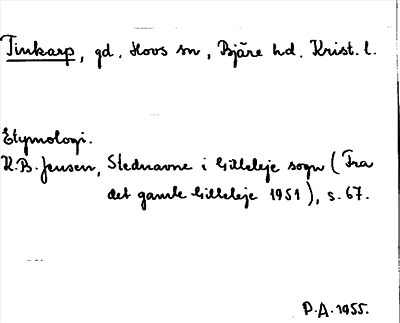 Tinkarp, gd. Hovs sn, Bjäre hd. Krist. l.
Etymologi.
K.B. Jensen, Stednavne i Gilleleje sogn (Fra
det gamle Gilleleje 1951), s. 67.
P.A. 1955.